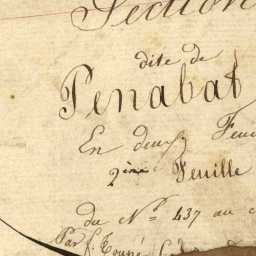 Section
dite de
Penabat
En deux Feui
2ème Feuille
du N° 437 au
Par f.